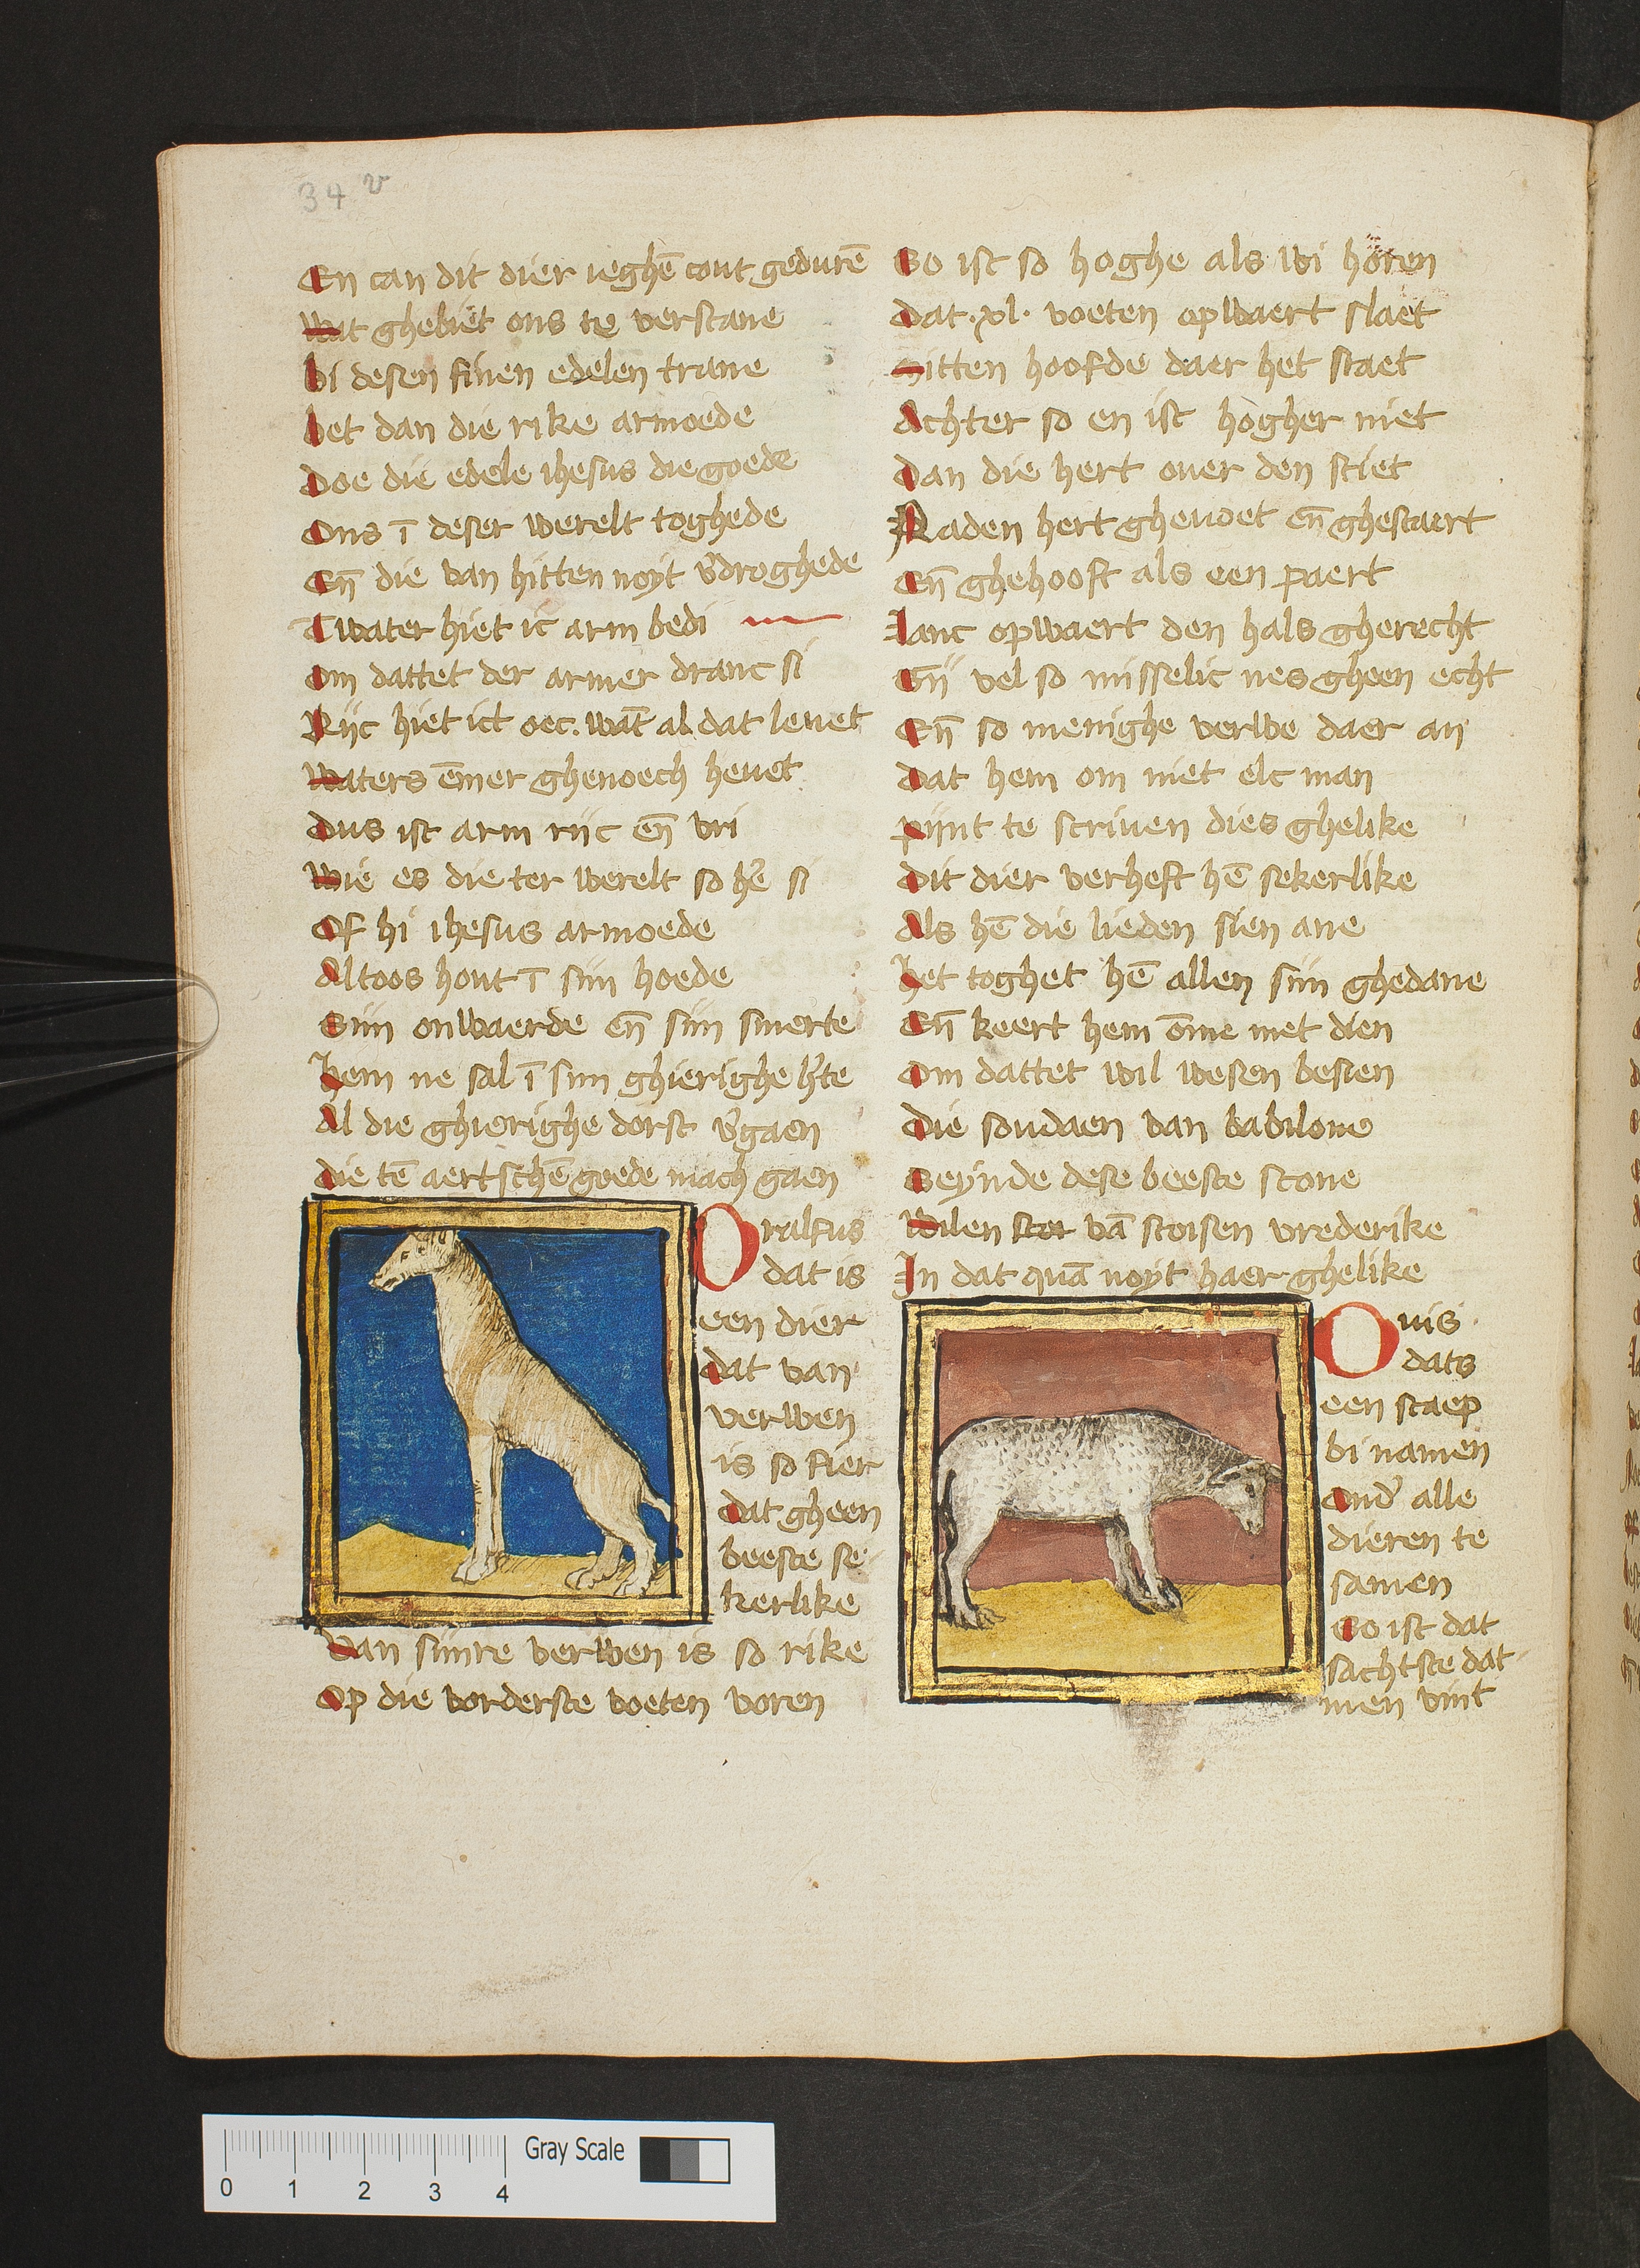 34 v
En can dit dier ieghē cout gedurē
Wat ghebiet ons te verstane
bi desen finen edelen trane
bet dan die rike armoede
Doe die edele ihesus die goede
Ons ī deser werelt toghede
Eñ die van hitten noyt v̓droghede
Twater hiet ic arm bedi
Om dattet der armer dranc si
Riic hiet ict oec. wāt al dat leuet
Waters ēmer ghenoech heuet
Dus ist arm riic eñ vri
Wie es die ter werelt so hē si
Of hi ihesus armoede
Altoos hout ī siin hoede
Siin onwaerde eñ siin smerte
Hem ne sal ī siin ghierighe h̓te
Al die ghierighe dorst v̓gaen
Die tē aertschē goede mach gaen
Oraflus
dat is
een dier
Dat van
verwen
is so fier
Dat gheen
beeste se
kerlike
Van siinre verwen is so rike
Op die vorderste voeten voren
So ist so hoghe als wi horen
Dat .xl. voeten opwaert slaet
Sitten hoofde daer het staet
Achter so en ist hogher niet
Dan die hert ouer den stiet
Naden hert ghevoet eñ ghestaert
Eñ ghehooft als een paert
Lanc opwaert den hals gherecht
Eñ vel so misselic nes gheen echt
Eñ so menighe verwe daer an
Dat hem om niet elc man
piint te scriuen dies ghelike
Dit dier verheft hē sekerlike
Als hē die lieden sien ane
Het toghet hē allen siin ghedane
Eñ keert hem ōme met dien
Om dattet wil wesen besien
Die soudaen van babilone
Seynde dese beeste scone
Wilen vā stoisen vrederike
In dat quā noyt haer ghelike
Ouis
dats
een scaep
bi namen
Ond̓ alle
dieren te
samen
So ist dat
sachtste dat
men vint
Gray Scale
0 1 2 3 4